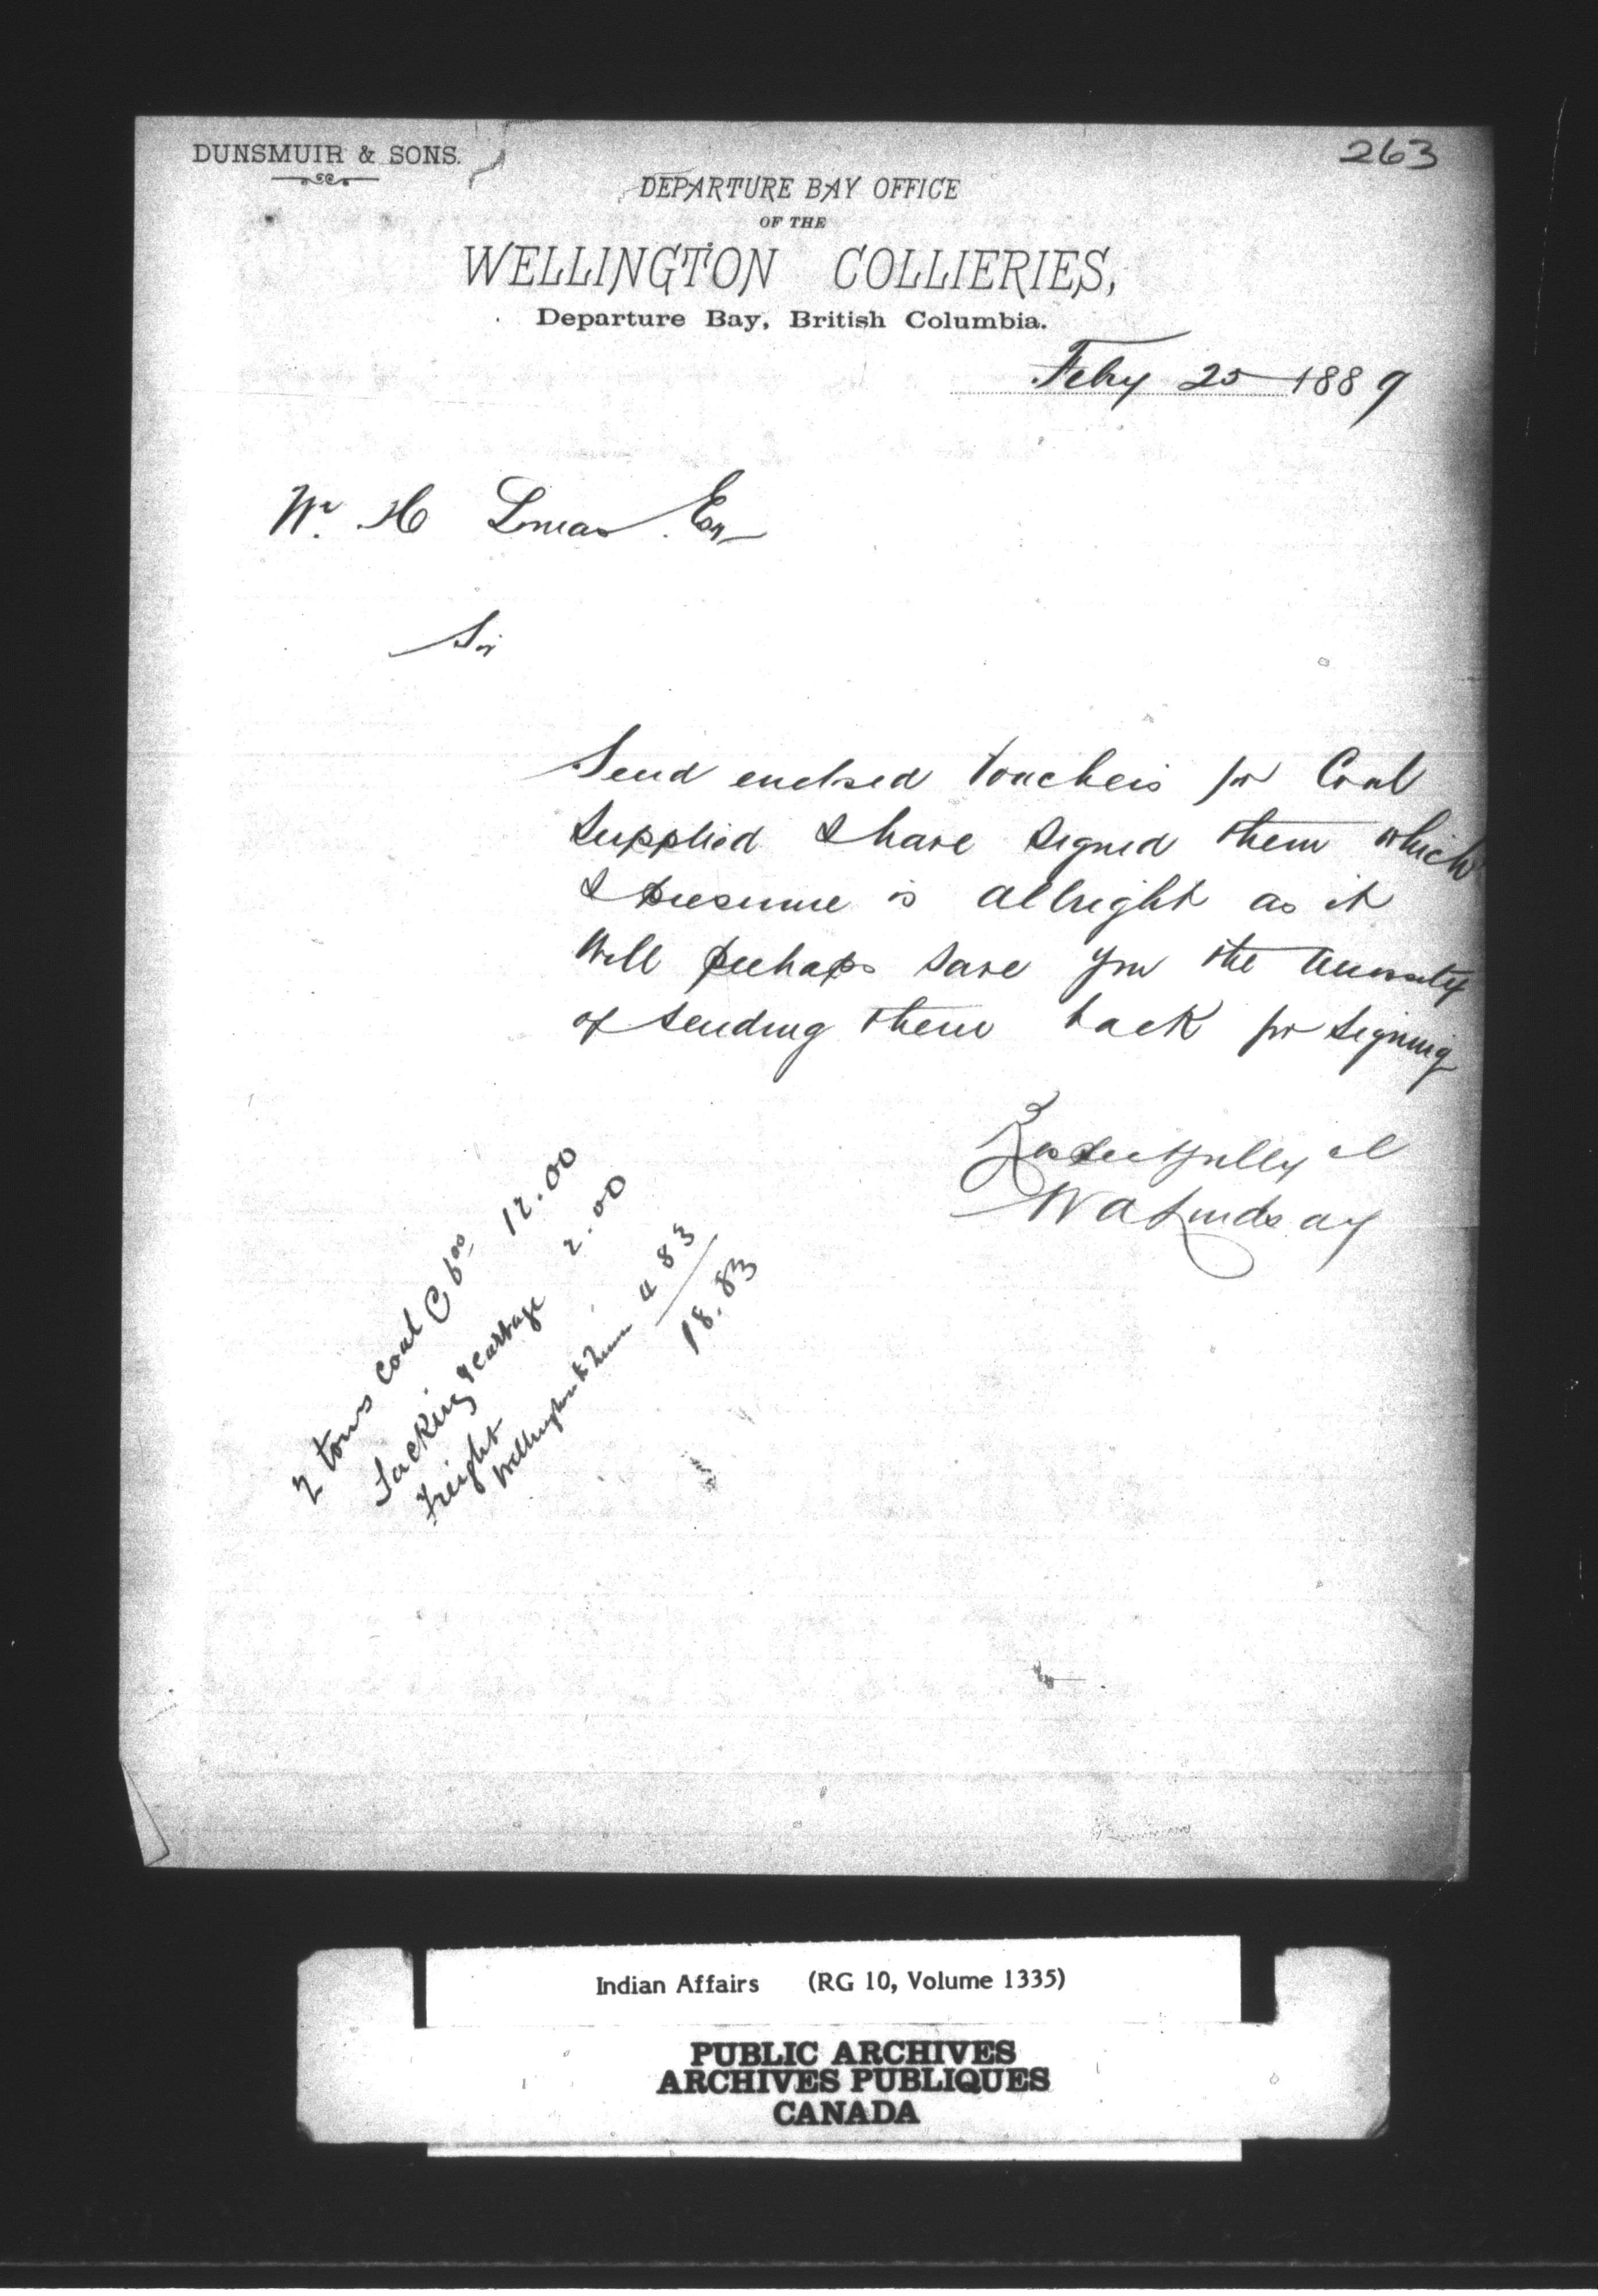 263
DUNSMUIR & SONS.
DEPARTURE BAY OFFICE
OF THE
WELLINGTON COLLIERIES,
Departure Bay, British Columbia.
Feby 25 1889
W. H Lomas Esq
Sir
Send enclosed vouchers for Coal
supplied I have signed them which
I presume is allright as it
will perhaps save you the necessity
of sending them back for signing
Respectfully
W A Lindsay
2 tons coal @ 6.00 12.00
Sacking & cartage 2.00
Freight
Wellington to 4 83
18.83
Indian Affairs (RG 10, Volume 1335)
PUBLIC ARCHIVES
ARCHIVES PUBLIQUES
CANADA